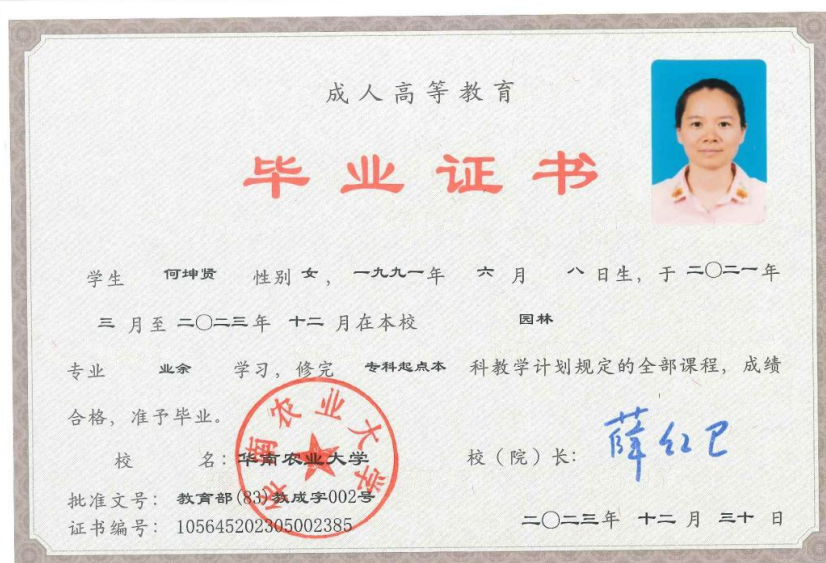 成人高等教育
毕业证书
学生 何坤贤 性别 女，一九九一年 六 月 八 日生，于 二〇二一年
三 月至 二〇二三年 十二 月在本校 园林
专业 业余 学习，修完 专科起点本 科教学计划规定的全部课程，成绩
合格，准予毕业。
校 名：华南农业大学 校（院）长：薛红卫
批准文号：教育部(83)教成字002号
证书编号：105645202305002385
二〇二三年 十二 月 三十 日
华南农业大学